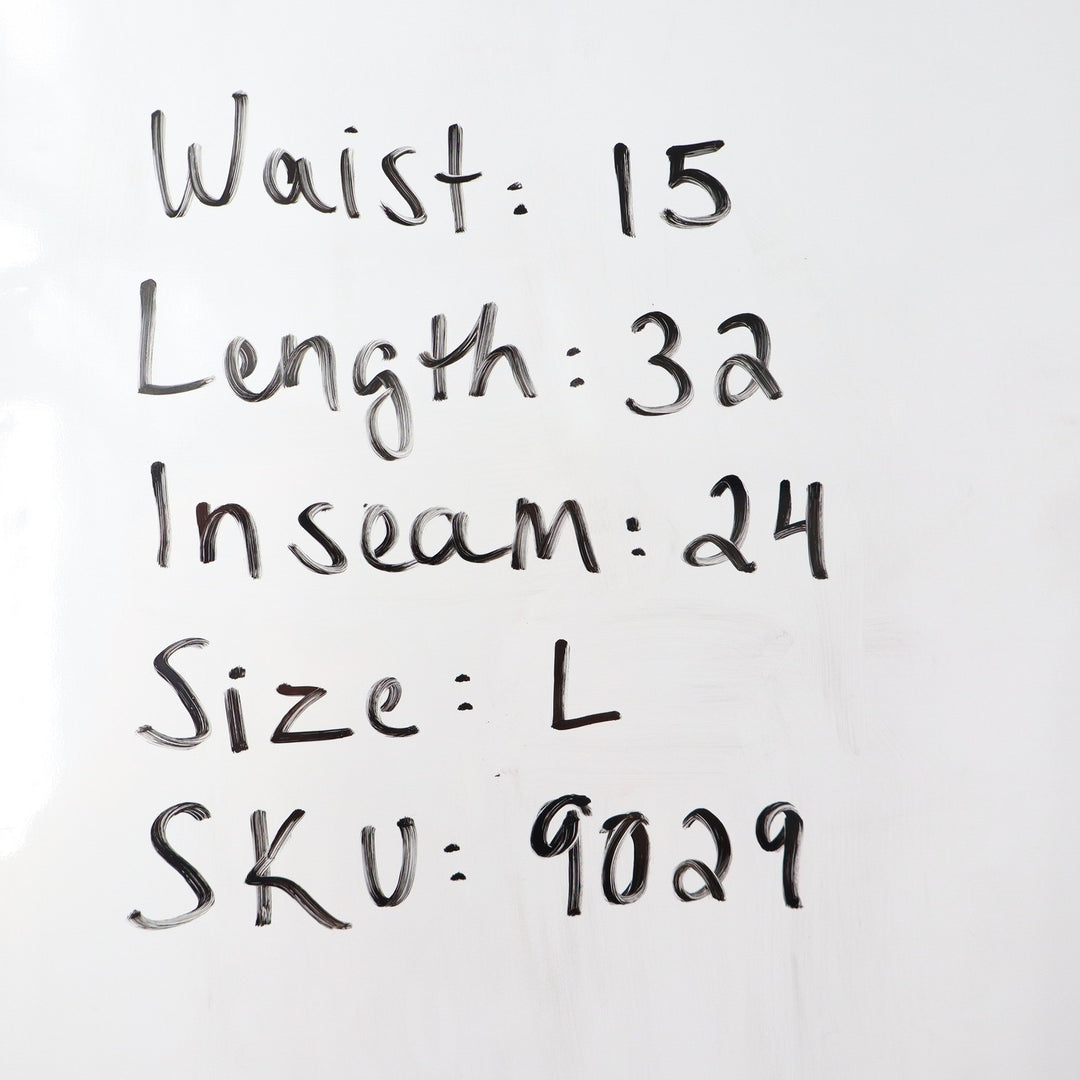 Waist: 15
Length: 32
Inseam: 24
Size: L
SKU: 9029